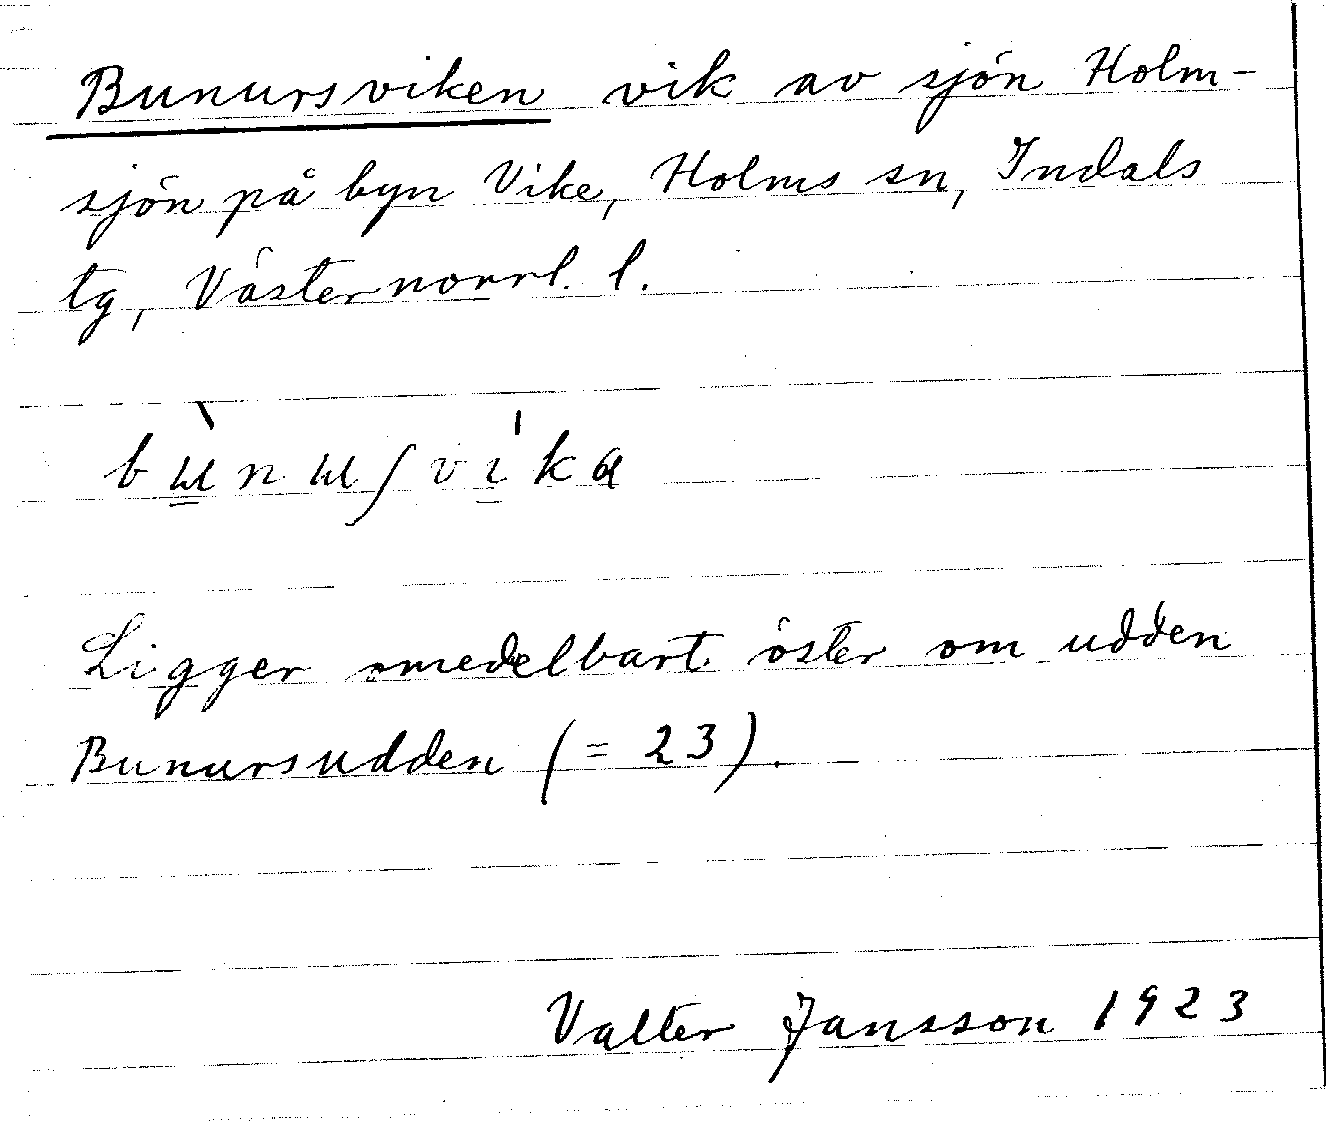 Bunursviken vik av sjön Holm-
sjön på byn Vike, Holms sn, Indals
tg, Västernorrl. l.
bùnuʃvika
Ligger omedelbart öster om udden
Bunursudden (= 23).
Valter Jansson 1923